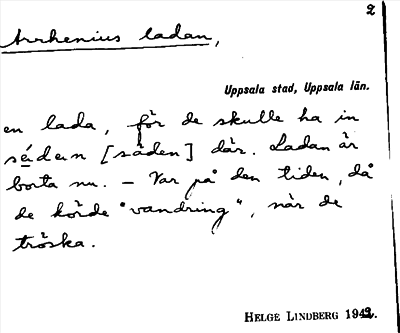 2
Arrhenius ladan,
Uppsala stad, Uppsala län.
en lada, för de skulle ha in
séden [säden] där. Ladan är
borta nu. — Var på den tiden, då
de körde "vandring", när de
tröska.
HELGE LINDBERG 1942.